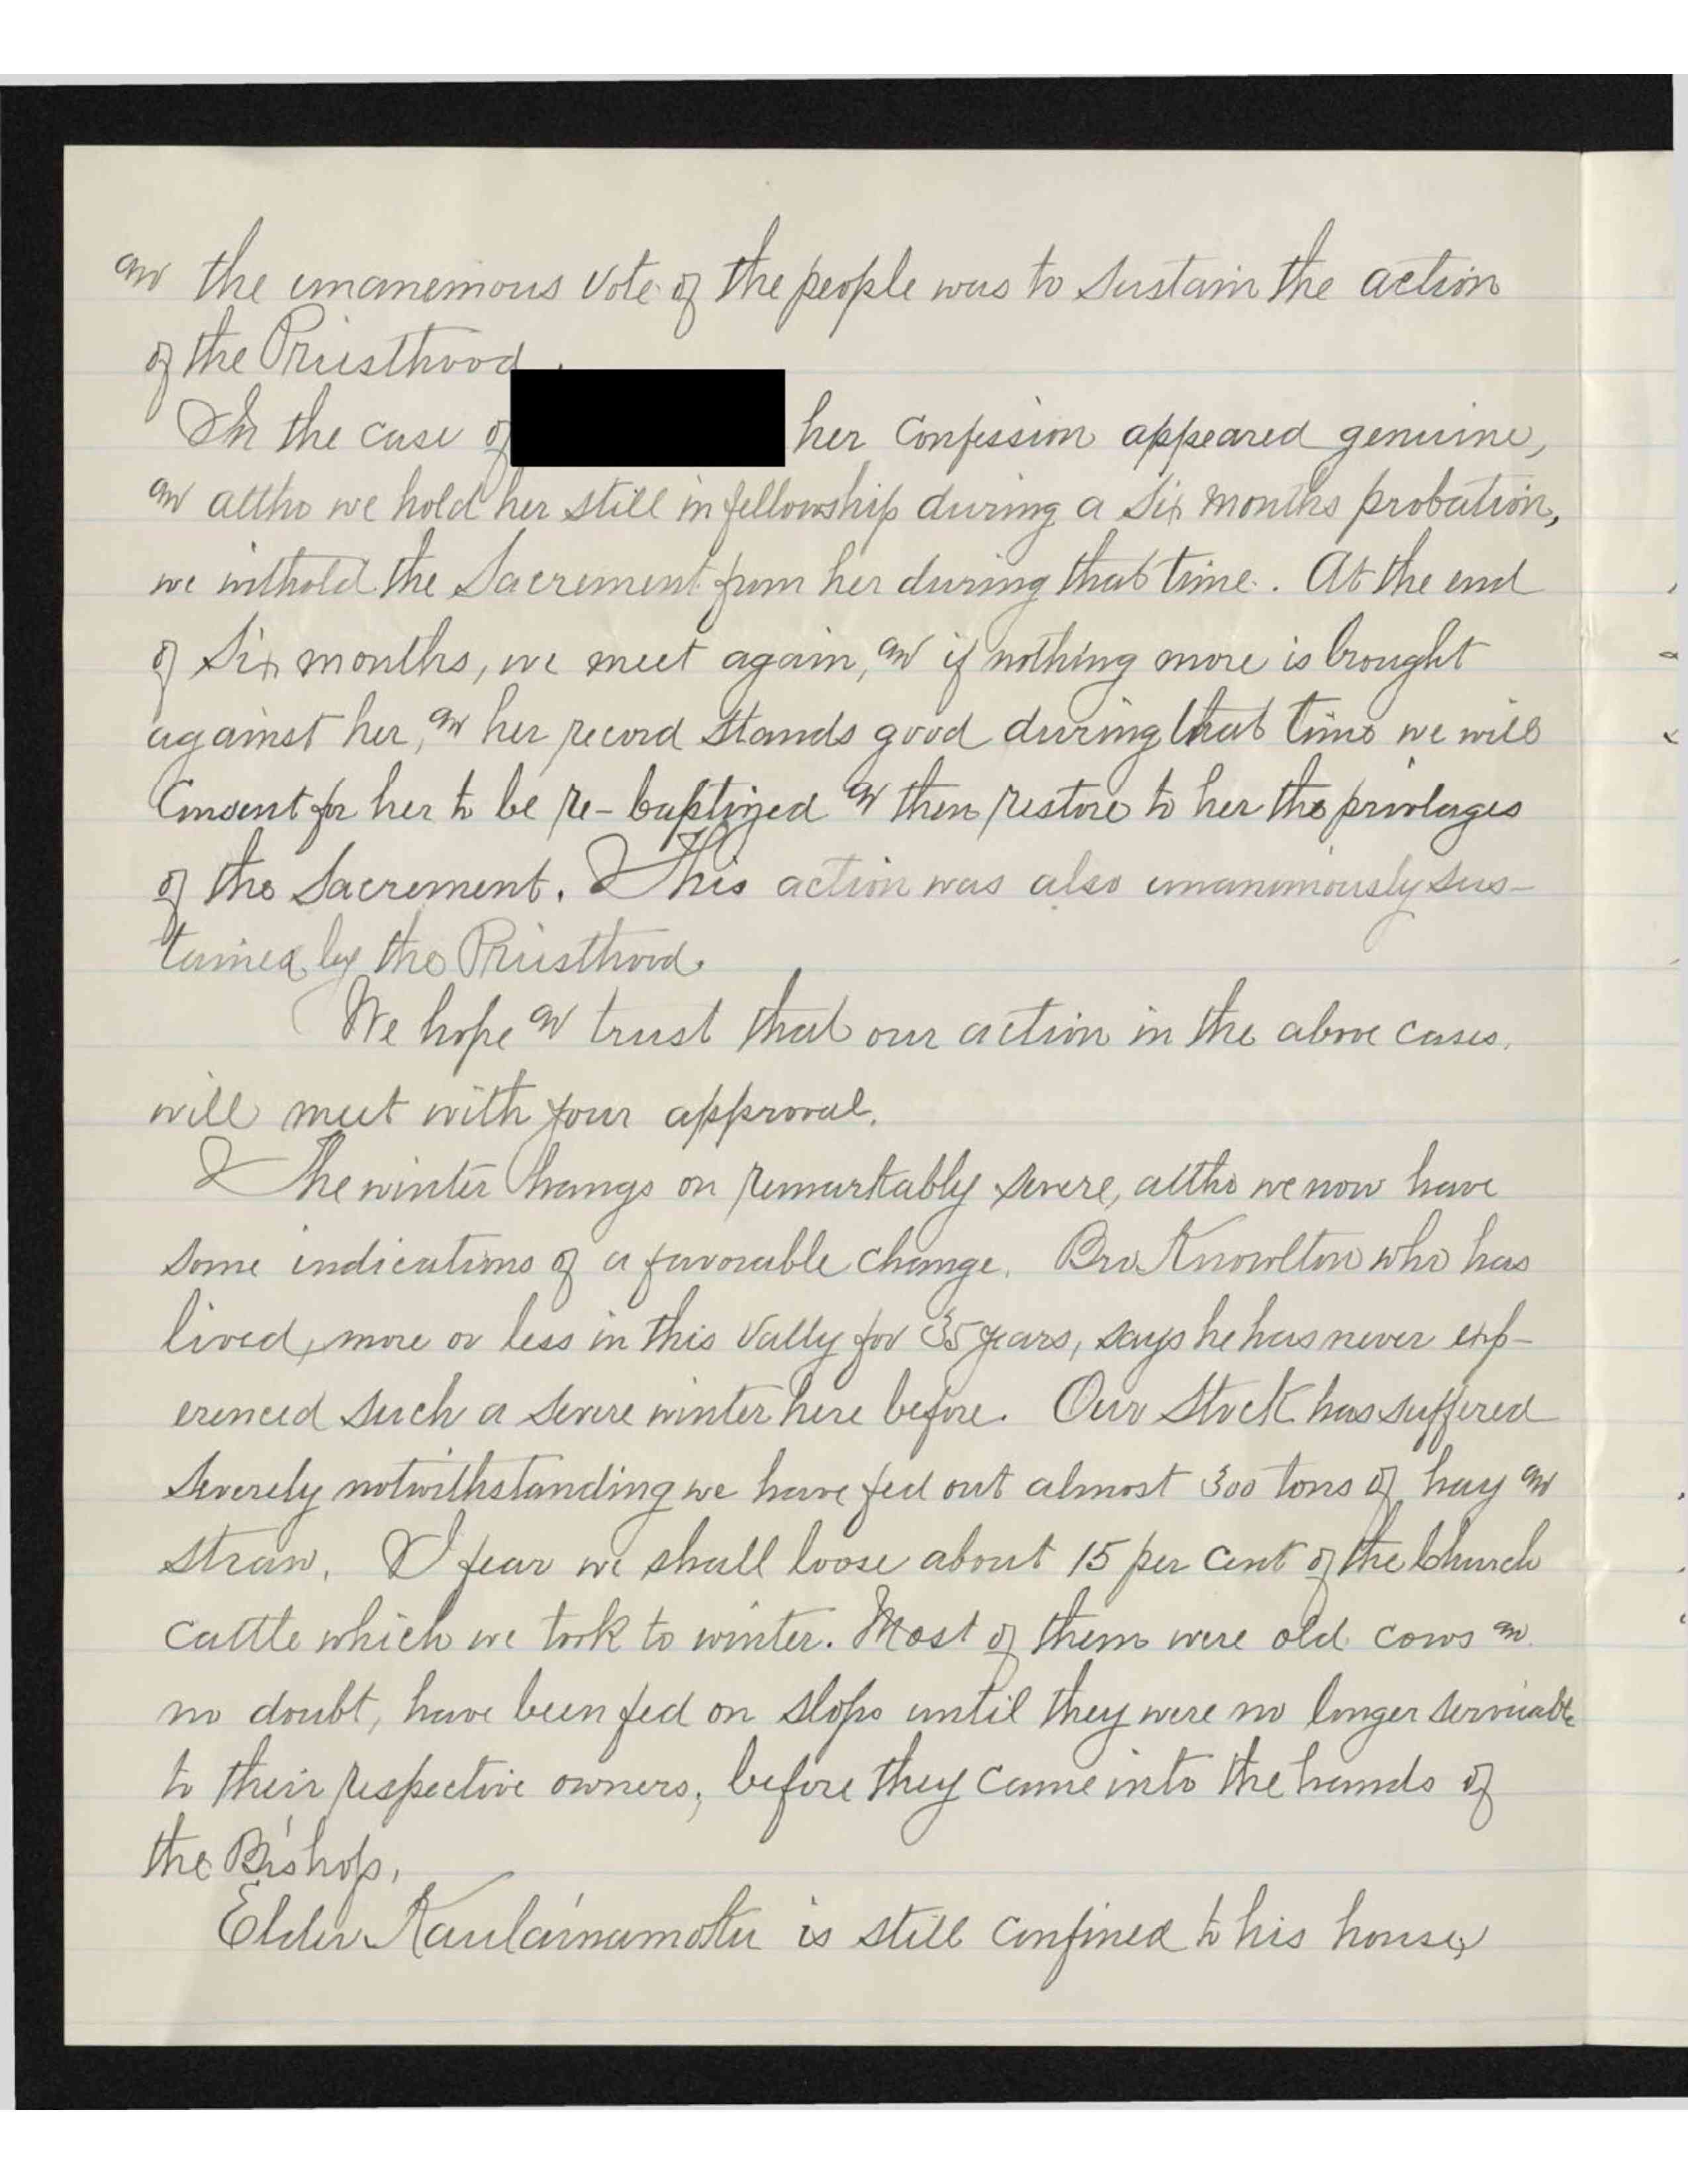 and the unanemous vote of the people was to sustain the action
of the Priesthood.
In the case of her confession appeared genuine,
and altho we hold her still in fellowship during a six months probation,
we withold the Sacrement from her during that time. At the end
of six months, we meet again, and if nothing more is brought
against her, and her record stands good during that time we will
consent for her to be re-baptized and then restore to her the privlages
of the Sacrement. This action was also unanimously sus-
tained by the Priesthood.
We hope and trust that our action in the above cases,
will meet with your approval.
The winter hangs on remarkably severe, altho we now have
some indications of a favorable change. Bro. Knowlton who has
lived, more or less in this vally for 35 years, says he has never exp-
erenced such a severe winter here before. Our stock has suffered
severely notwithstanding we have fed out almost 300 tons of hay and
straw. I fear we shall loose about 15 per cent of the Church
cattle which we took to winter. Most of them were old cows and
no doubt, have been fed on slops until they were no longer
to their respective owners, before they came into the hands of
the Bishop.
Elder Kaulainamoku is still confined to his house,